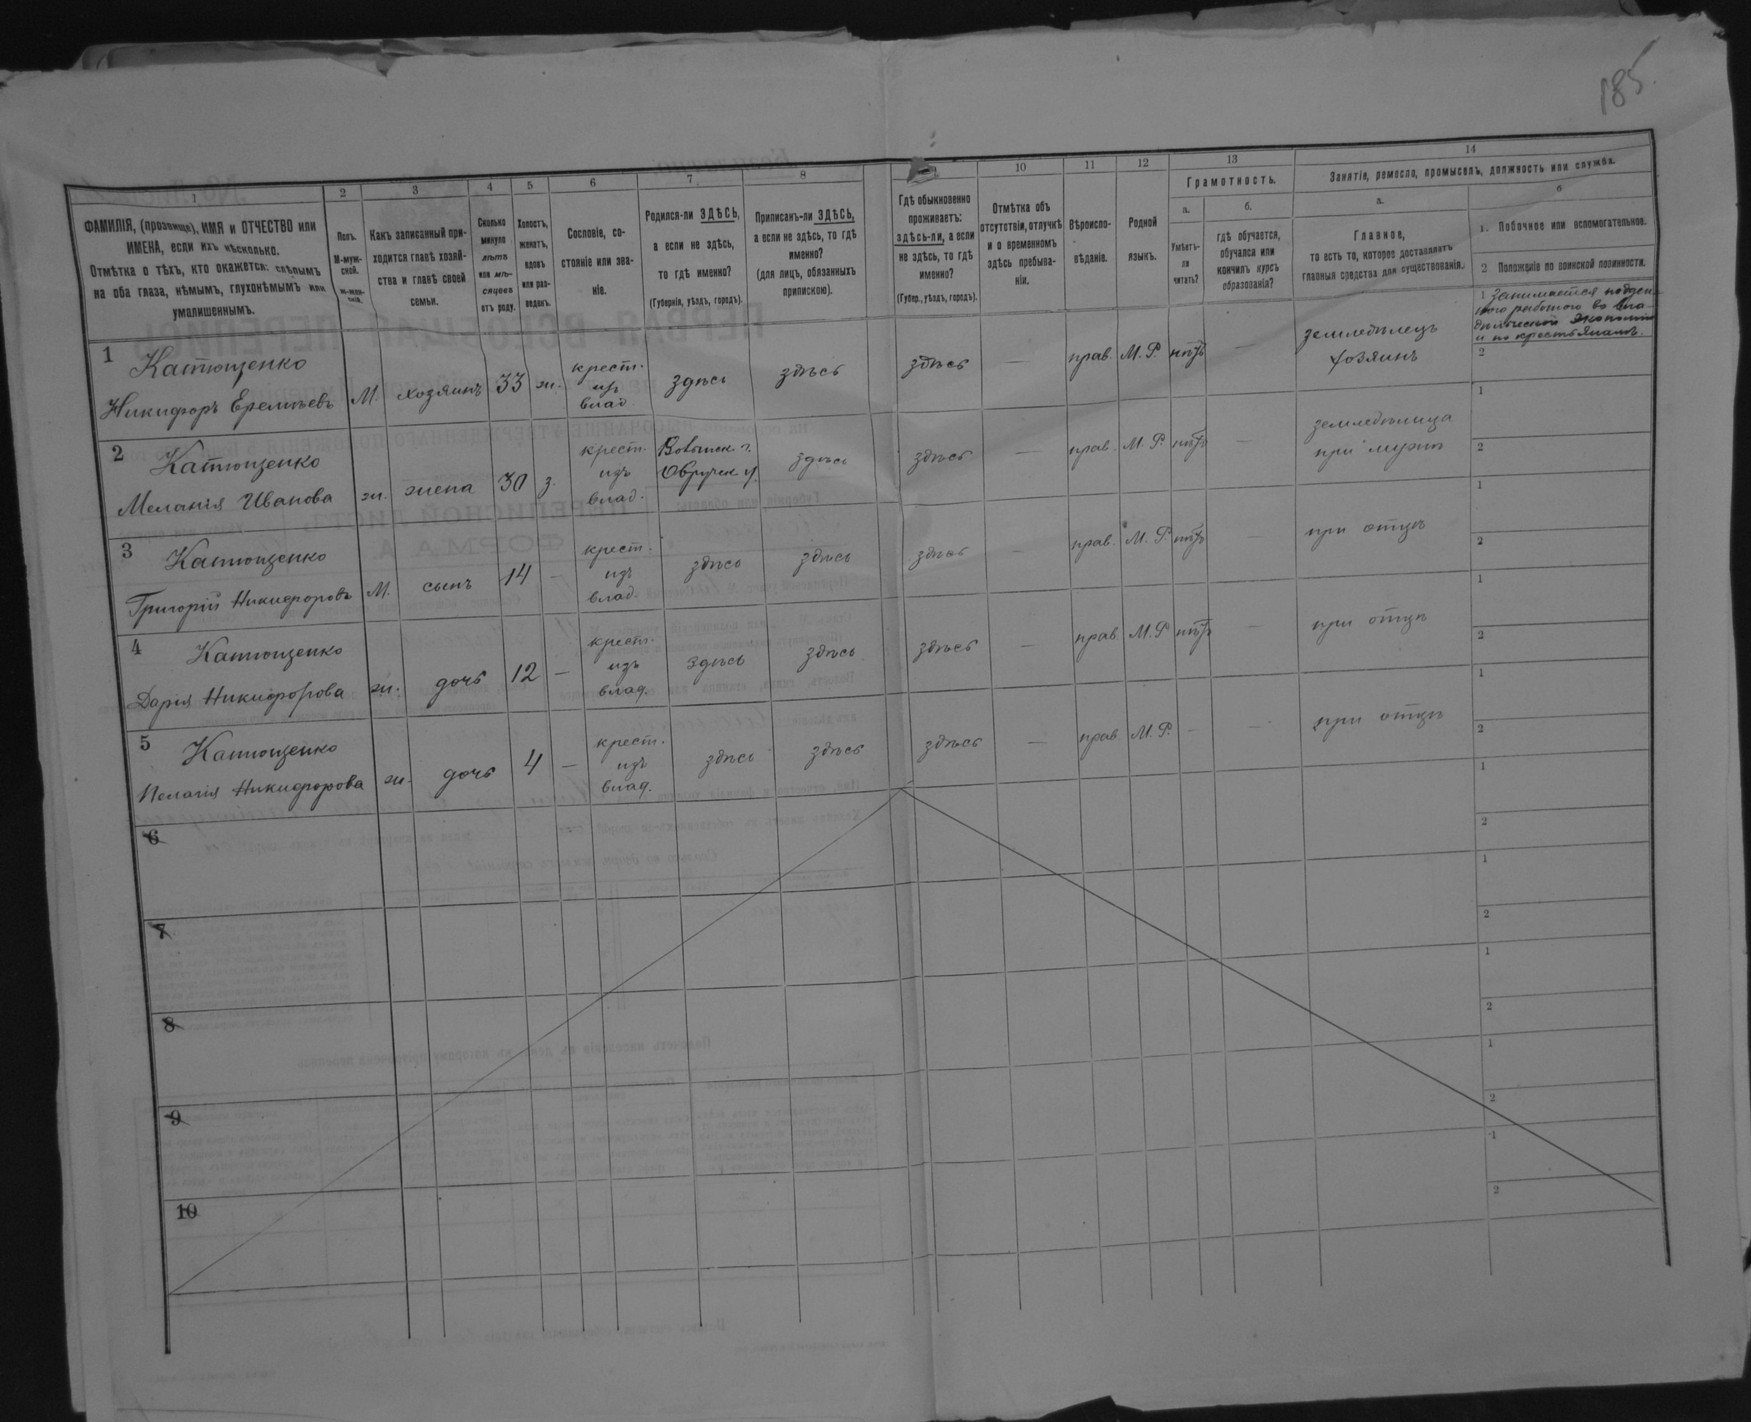 185.
1
2
3
4
5
6
7
8
10
11
12
13
14
ФАМИЛІЯ, (прозвище), ИМЯ и ОТЧЕСТВО или
ИМЕНА, если ихъ нѣсколько.
Отмѣтка о тѣхъ, кто окажется: слѣпымъ
на оба глаза, нѣмымъ, глухонѣмымъ или
умалишеннымъ.
Полъ.
М-муж-
ской.
ж-жен-
скій.
Какъ записанный при-
ходится главѣ хозяй-
ства и главѣ своей
семьи.
Сколько
минуло
лѣтъ
или мѣ-
сяцевъ
отъ роду.
Холостъ,
женатъ,
вдовъ
или раз-
веденъ.
Сословіе, со-
стояніе или зва-
ніе.
Родился-ли ЗДѢСЬ,
а если не здѣсь,
то гдѣ именно?
(Губернія, уѣздъ, городъ).
Приписанъ-ли ЗДѢСЬ,
а если не здѣсь, то гдѣ
именно?
(для лицъ, обязанныхъ
припискою).
Гдѣ обыкновенно
проживаетъ:
здѣсь-ли, а если
не здѣсь, то гдѣ
именно?
(Губер., уѣздъ, городъ).
Отмѣтка объ
отсутствіи, отлучкѣ
и о временномъ
здѣсь пребыва-
ніи.
Вѣроиспо-
вѣданіе.
Родной
языкъ.
Грамотность.
а.
Умѣетъ-
ли
читать?
б.
гдѣ обучается,
обучался или
кончилъ курсъ
образованія?
Занятіе, ремесло, промыселъ, должность или служба.
а.
Главное,
то есть то, которое доставляетъ
главныя средства для существованія.
б
1. Побочное или вспомогательное.
2 Положеніе по воинской повинности.
1 Катющенко
Никифоръ Еремѣевъ
М
хозяинъ
33
ж.
крест.
изъ
влад.
здѣсь
здѣсь
здѣсь
—
прав.
М. Р.
нѣтъ
—
земледѣлецъ
хозяинъ
1 Занимается поден-
ною работою во вла-
дѣльческой экономіи
и по крестьянамъ.
2
2 Катющенко
Меланія Иванова
ж.
жена
30
з.
крест.
изъ
влад.
Волынск. г.
Овручск. у.
здѣсь
здѣсь
—
прав.
М. Р.
нѣтъ
—
земледѣлица
при мужѣ
1
2
3 Катющенко
Григорій Никифоровъ
М.
сынъ
14
—
крест.
изъ
влад.
здѣсь
здѣсь
здѣсь
—
прав.
М. Р.
нѣтъ
—
при отцѣ
1
2
4 Катющенко
Дарія Никифорова
ж.
дочь
12
—
крест.
изъ
влад.
здѣсь
здѣсь
здѣсь
—
прав.
М. Р.
нѣтъ
—
при отцѣ
1
2
5 Катющенко
Пелагія Никифорова
ж.
дочь
4
—
крест.
изъ
влад.
здѣсь
здѣсь
здѣсь
—
прав.
М. Р.
—
—
при отцѣ
1
2
6
1
2
7
1
2
8
1
2
9
1
2
10
1
2